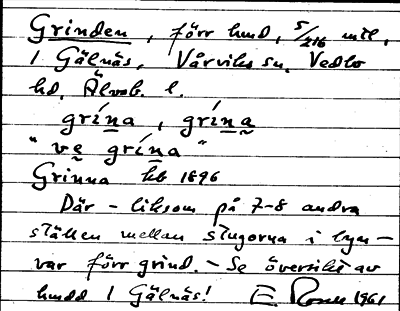 Grinden, förr hmd, 5/216 mtl,
1 Gälnäs, Vårviks sn, Vedbo
hd, Älvsb. l.
grína, grína
"ve grína"
Grinna hb 1896
Där - liksom på 7-8 andra
ställen mellan stugorna i byn -
var förr grind. - Se översikt av
hmdd 1 Gälnäs! E. 1961